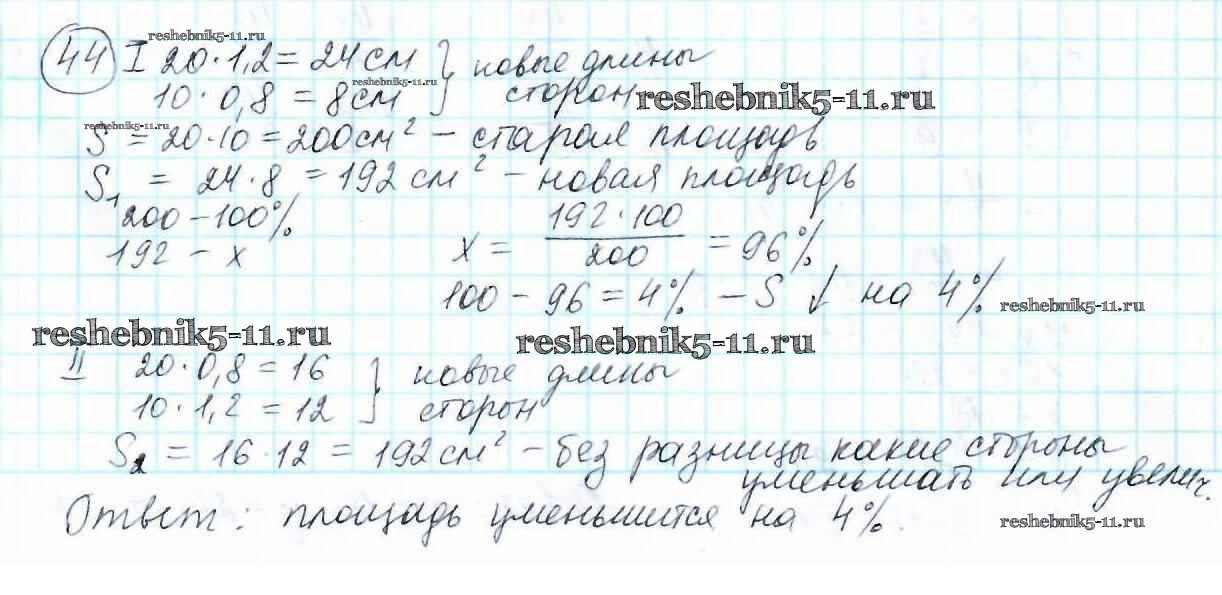 reshebnik5-11.ru
44 I 20·1,2 = 24 см } новые длины
reshebnik5-11.ru
10·0,8 = 8 см } сторон
reshebnik5-11.ru
reshebnik5-11.ru
S = 20·10 = 200 см² – старая площадь
S₁ = 24·8 = 192 см² – новая площадь
200 – 100%
192 – x
x = \frac{192·100}{200} = 96%
100 – 96 = 4% – S ↓ на 4%
reshebnik5-11.ru
reshebnik5-11.ru
reshebnik5-11.ru
II 20·0,8 = 16 } новые длины
10·1,2 = 12 } сторон
S₂ = 16·12 = 192 см² – без разницы какие стороны
уменьшать или увелич.
Ответ: площадь уменьшится на 4%.
reshebnik5-11.ru